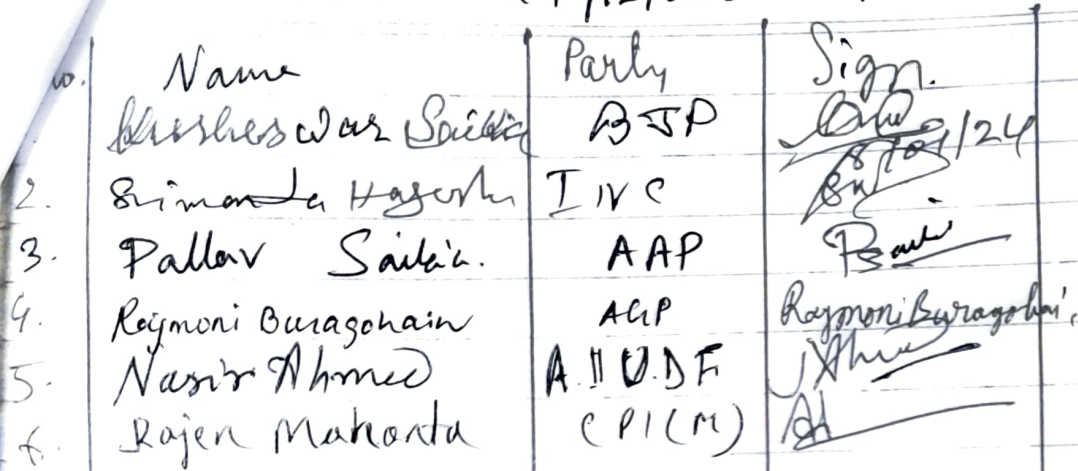 No. Name Party Sign.
Saikia BJP 8/01/24
2. Srimanta INC
3. Pallav Saikia. AAP
4. Rajmoni Buragohain AGP Rajmoni Buragohai,
5. Nasir Ahmed A.IUDF
6. Rajen Mahanta CPI(M)